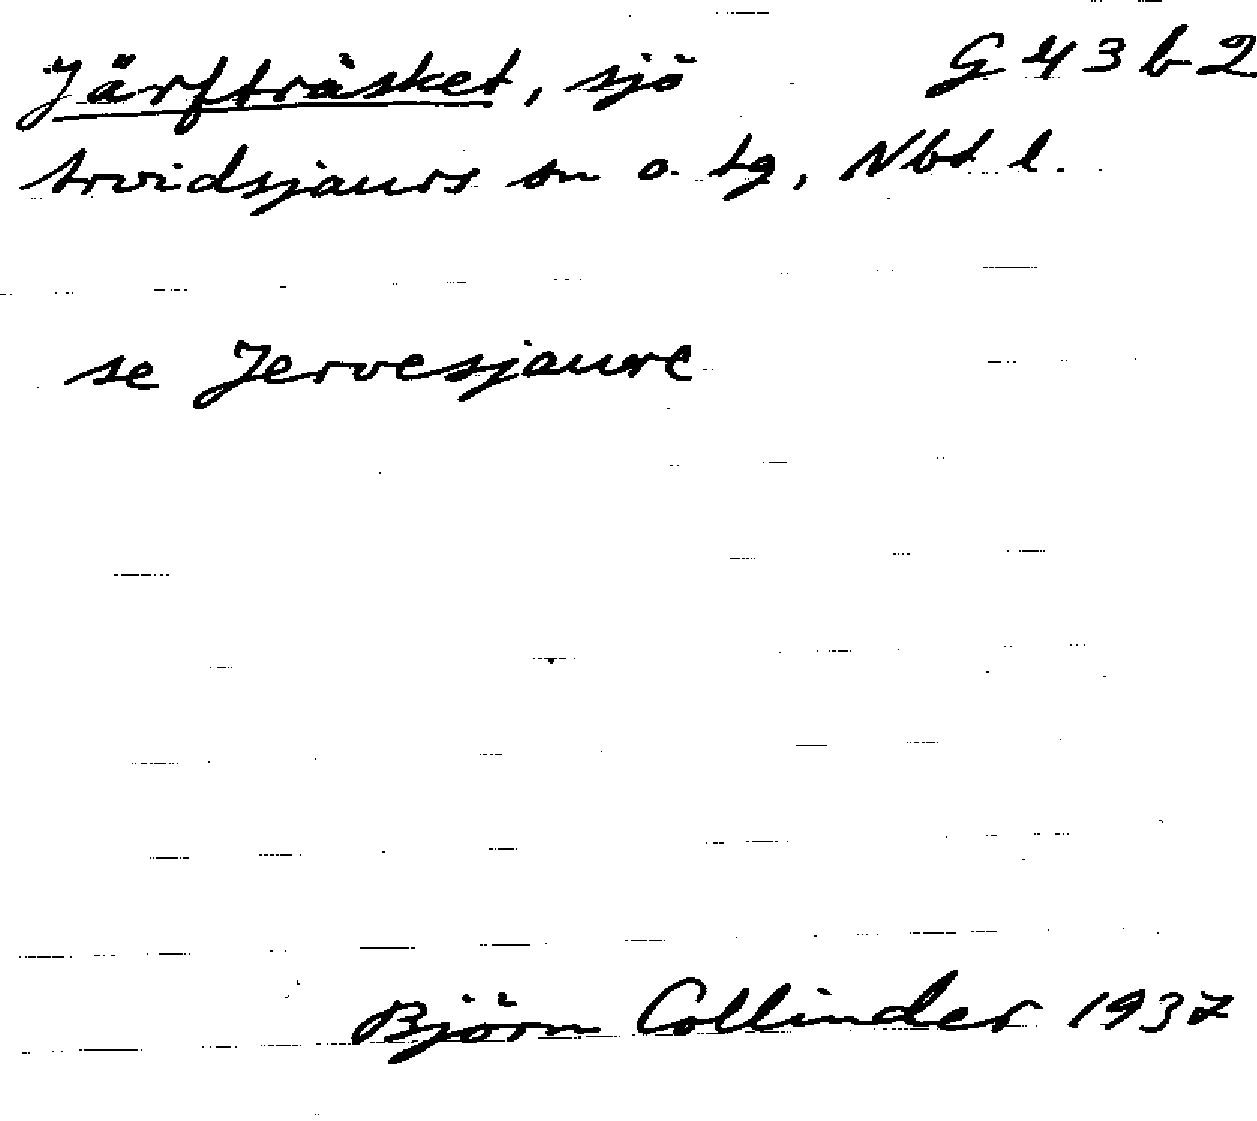 Järfträsket, sjö G 43 b 2
Arvidsjaurs sn o. tg, Nbt. l.
se Jervesjaure
Björn Collinder 1937